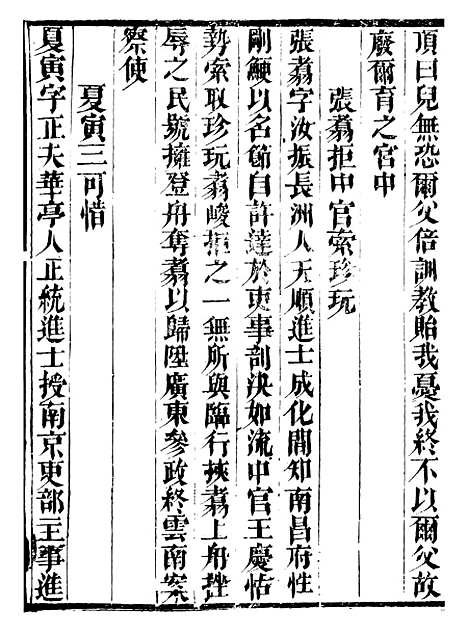 頂曰兒無恐爾父倍訓教貽我憂我終不以爾父故
廢爾育之宮中
張翥拒中官索珍玩
張翥字汝振長洲人天順進士成化間知南昌府性
剛鯁以名節自許達於吏事剖決如流中官王慶怙
勢索取珍玩翥峻拒之一無所與臨行挾翥上舟挫
辱之民號擁登舟奪翥以歸陞廣東參政終雲南案
察使
夏寅三可惜
夏寅字正夫華亭人正統進士授南京吏部主事進